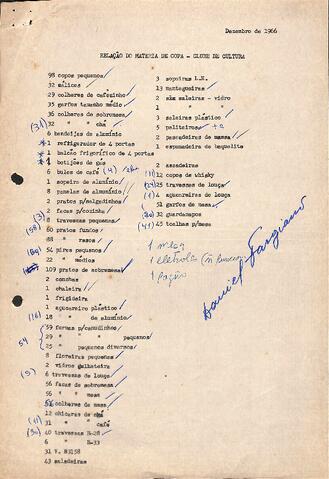 Dezembro de 1966
RELAÇÃO DO MATERIA DE COPA - CLUBE DE CULTURA
98 copos pequenos
32 calices
29 colheres de cafezinho
35 garfos tamanho médio
36 colheres de sobremesa
(31) 32 " " chá
6 bandeijas de aluminio
1 refrigerador de 4 portas
1 balcão frigorífico de 4 portas
1 botijões de gás
6 bules de café (4)
1 sopeiro de aluminio
8 panelas de aluminio
2 pratos p/salgadinhos
2 facas p/cozinha
(3) 8 travessas pequenas
(58) 60 pratos fundos
(84) 88 " rasos
54 pires pequenos
22 " médios
109 pratos de sobremesa
2 conchas
1 chaleira
1 frigideira
1 açucareiro plastico
(16) 18 " de aluminio
59 formas p/canudinhos
54 29 " " pequenos
25 " pequenos diversos
8 floreiras pequenas
2 vidros galheteira
(5) 6 travessas de louça
56 facas de sobremesa
56 " " mesa
56 colheres de mesa
12 chicaras de chá
(11) 31 " " café
(30) 40 travessas R-28
6 " R-33
31 V. N3158
43 saladeiras
3 sopeiras I.N.
13 manteguciras
2 aks saleiras - vidro
1 " "
3 saleiras plastico
5 paliteiros +2
2 passadeiras de massa
1 espumadeira de baguelito
2 assadeiras
(11) 12 copos de whisky
(24) 25 travessas de louça
(1) 4 açucareiros de louça
51 garfos de massa
(26) 32 guardanapos
(41) 45 toalhas p/mesa
1 mesa
1 eletrola
1 fogão
Daniel